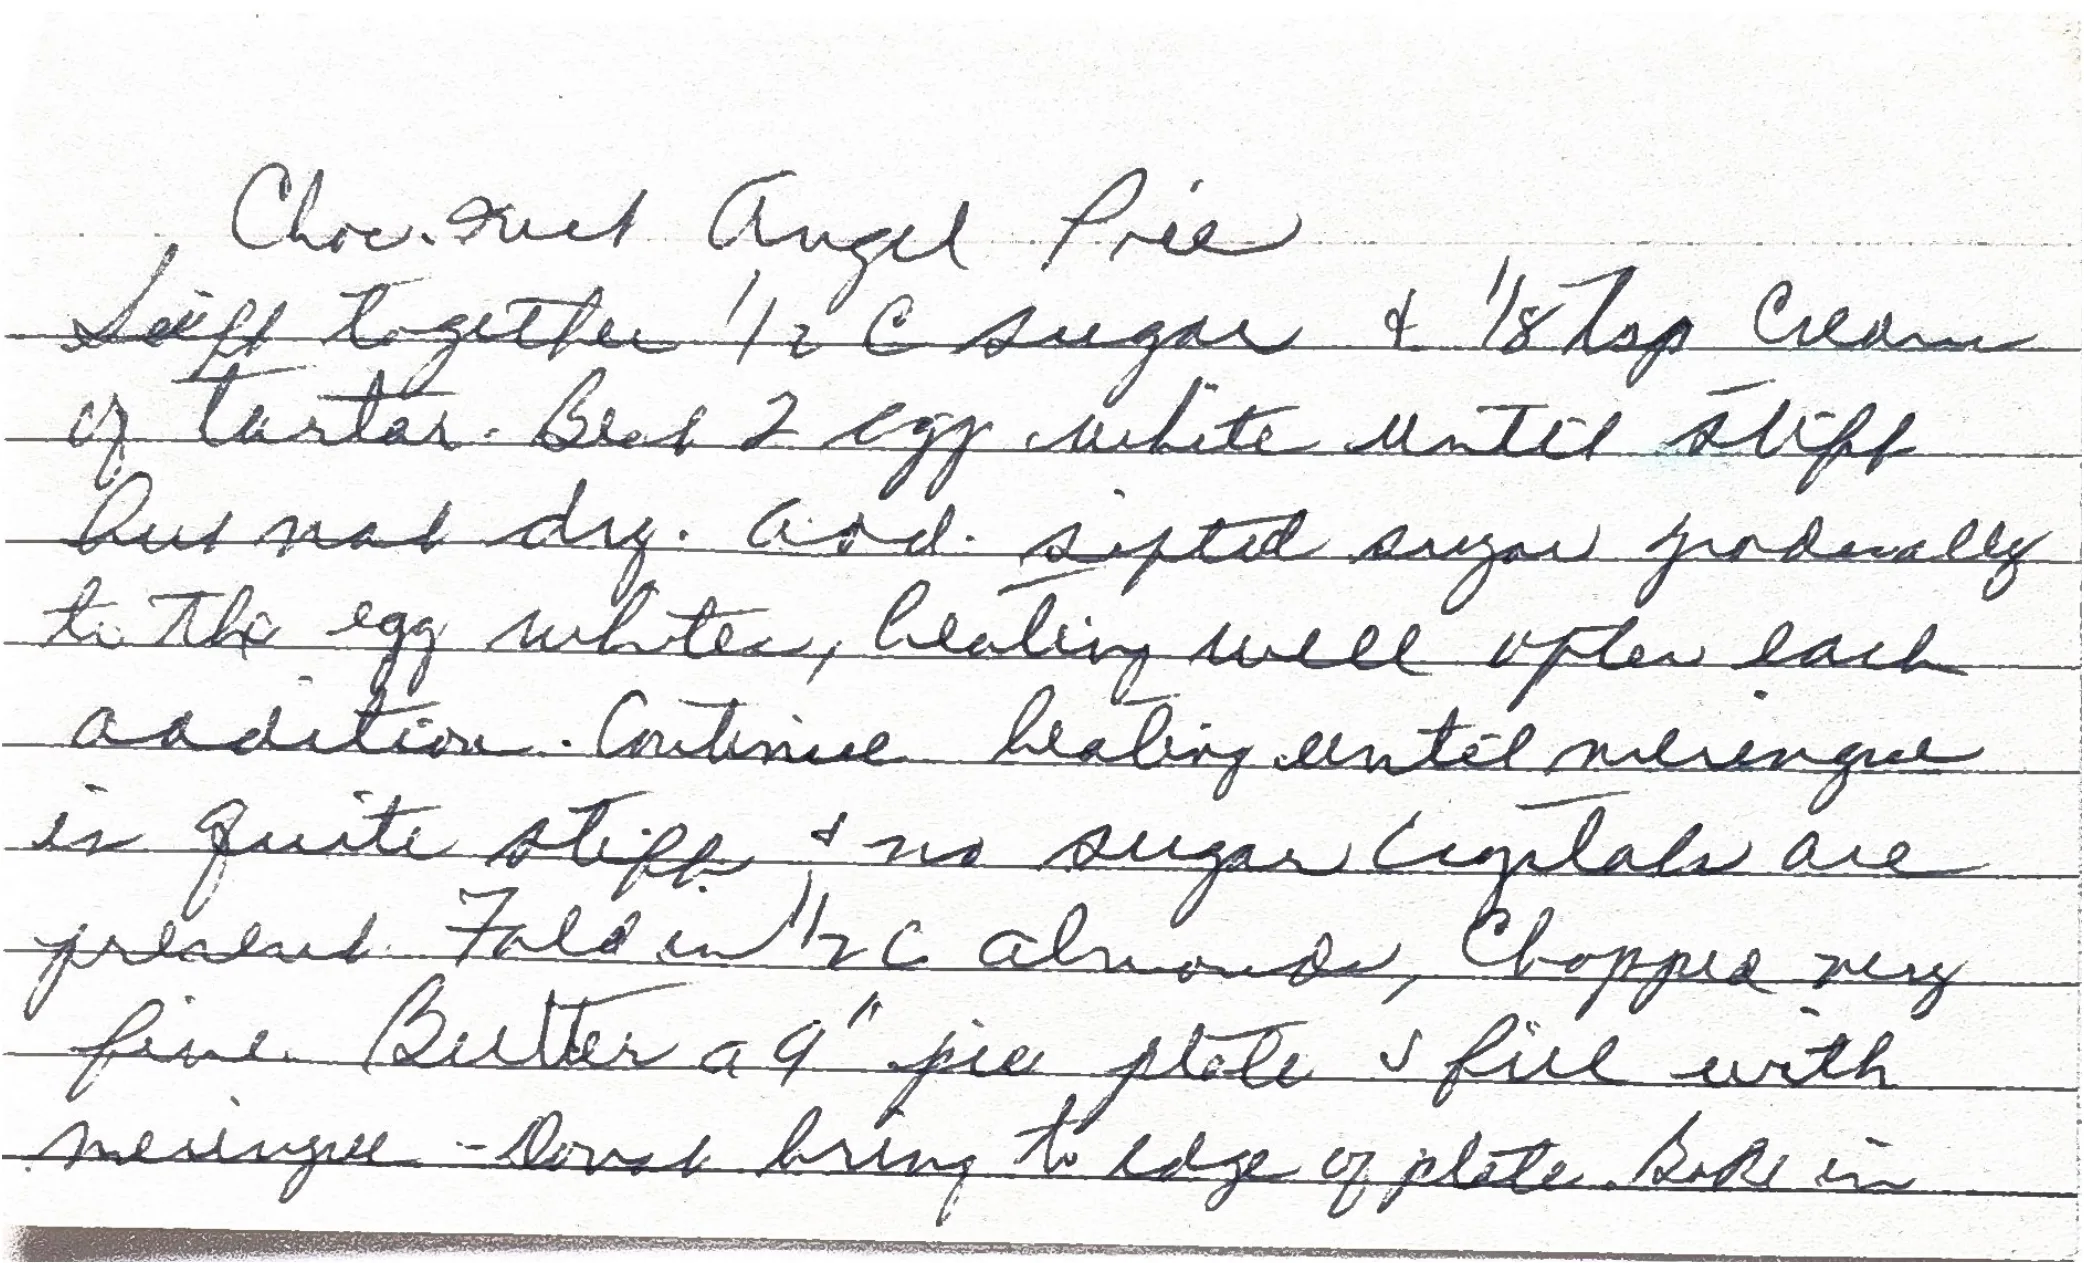 Choc. Nut Angel Pie
Sift together 1/2 C sugar & 1/8 tsp Cream
of tartar. Beat 2 egg white until stiff
but not dry. Add. sifted sugar gradually
to the egg whites, beating well after each
addition. Continue beating until meringue
is quite stiff & no sugar crystals are
present. Fold in 1/2 C almonds, Chopped very
fine. Butter a 9" pie plate & fill with
meringue - Do not bring to edge of plate. Bake in